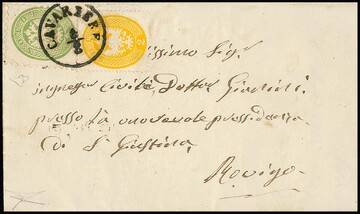 CAVARZERE
2
Sig.
Ingegnere Civile Dottor
presso la onorevole presidenza
di S. Giustina
Rovigo